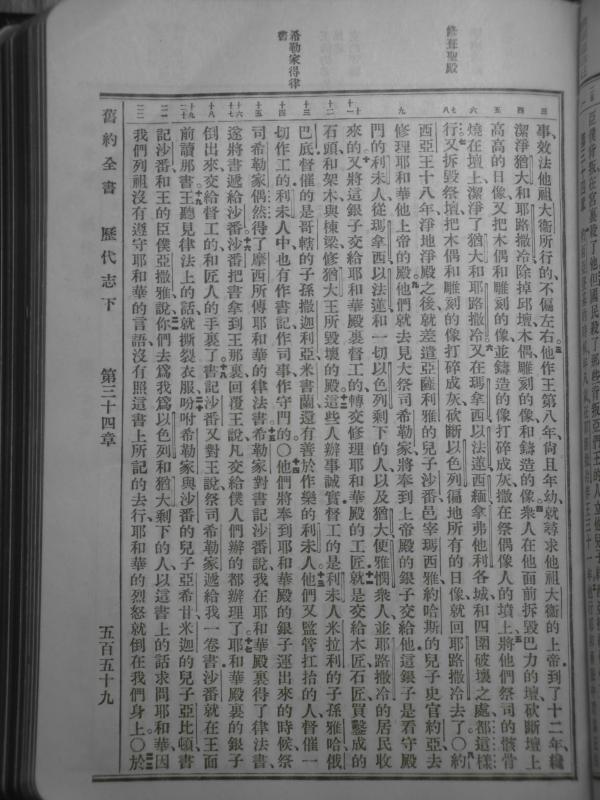 修葺聖殿
希勒家得律書
事、效法他祖大衛所行的、不偏左右。他作王第八年、尙且年幼、就尋求他祖大衛的上帝、到了十二年、纔
潔淨猶大和耶路撒冷、除掉邱壇木偶、雕刻的像、和鑄造的像。衆人在他面前拆毀巴力的壇、砍斷壇上
高高的日像、又把木偶和雕刻的像、並鑄造的像、打碎成灰、撒在祭偶像人的墳上、將他們祭司的骸骨
燒在壇上、潔淨了猶大和耶路撒冷、又在瑪拿西、以法蓮、西緬、拿弗他利各城、和四圍破壞之處、都這樣
行、又拆毀祭壇、把木偶和雕刻的像打碎成灰、砍斷以色列徧地所有的日像、就回耶路撒冷去了。〇約
西亞王十八年、淨地淨殿之後、就差遣亞薩利雅的兒子沙番、邑宰瑪西雅、約哈斯的兒子史官約亞、去
修理耶和華他上帝的殿。他們就去見大祭司希勒家、將奉到上帝殿的銀子交給他、這銀子是看守殿
門的利未人、從瑪拿西、以法蓮、和一切以色列剩下的人、以及猶大、便雅憫衆人、並耶路撒冷的居民收
來的、又將這銀子交給耶和華殿裏督工的、轉交修理耶和華殿的工匠、就是交給木匠、石匠、買鑿成的
石頭、和架木與棟梁、修猶大王所毀壞的殿。這些人辦事誠實、督工的是利未人米拉利的子孫雅哈、俄
巴底、督催的是哥轄的子孫撒迦利亞、米書蘭、還有善於作樂的利未人。他們又監管扛抬的人、督催一
切作工的、利未人中也有作書記、作司事、作守門的。〇他們將奉到耶和華殿的銀子運出來的時候、祭
司希勒家偶然得了摩西所傳耶和華的律法書。希勒家對書記沙番說、我在耶和華殿裏得了律法書、
遂將書遞給沙番。沙番把書拿到王那裏、回覆王說、凡交給僕人們辦的、都辦理了、耶和華殿裏的銀子
倒出來、交給督工的、和匠人的手裏了。書記沙番又對王說、祭司希勒家遞給我一卷書、沙番就在王面
前讀那書。王聽見律法上的話、就撕裂衣服、吩咐希勒家與沙番的兒子亞希甘、米迦的兒子亞比頓、書
記沙番、和王的臣僕亞撒雅、說、你們去爲我、爲以色列和猶大剩下的人、以這書上的話求問耶和華、因
我們列祖沒有遵守耶和華的言語、沒有照這書上所記的去行、耶和華的烈怒就倒在我們身上。〇於
舊約全書 歷代志下 第三十四章 五百五十九